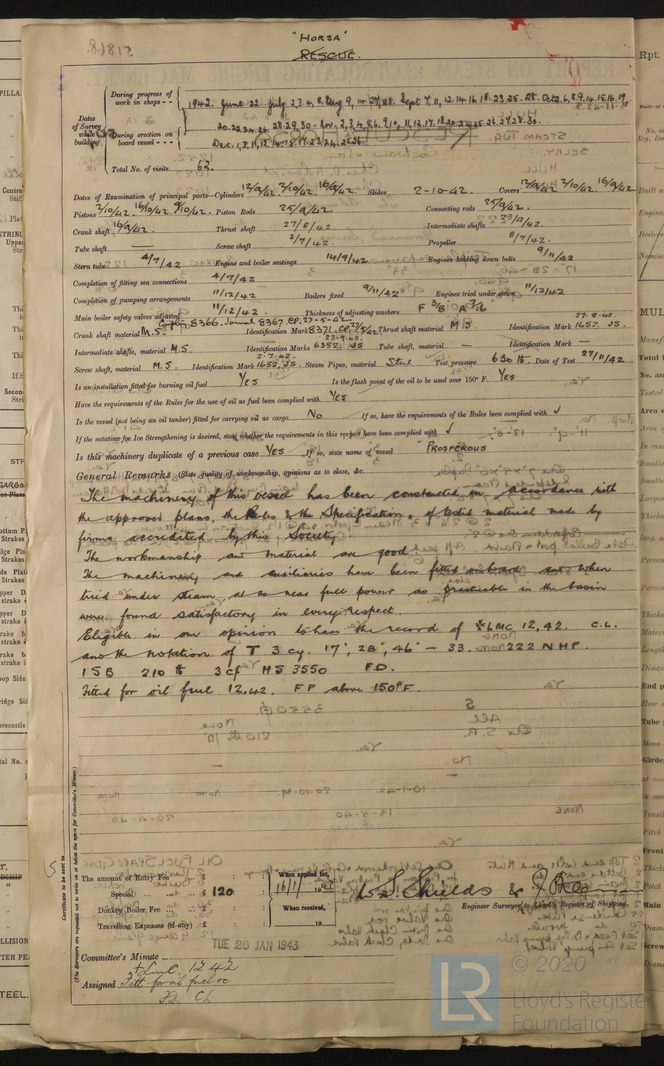 "HORSA"
RESCUE.
Dates of Survey while building
During progress of work in shops - -
1942. June 22. July 2,3,4,8, Aug 9, 14. 27,28. Sept 7, 11, 12.14.16.18.23.25.28. Oct 2, 6,8,9.14.15.16.19
20.22.24.26.28.29.30 - Nov. 2,3,4,5,6,9,10,11,12,17,18,20.24.25.26.27.28.30.
During erection on board vessel - - -
Total No. of visits 62.
Dates of Examination of principal parts—Cylinders 12/9/42. 2/10/42. 16/9/42 Slides 2-10-42. Covers 12/9/42. 2/10/42. 16/9/42
Pistons 2/10/42. 16/10/42. 9/10/42. Piston Rods 25/9/42. Connecting rods 25/9/42.
Crank shaft 16/9/42. Thrust shaft 27/8/42. Intermediate shafts 23/9/42.
Tube shaft — Screw shaft 2/7/42. Propeller 8/7/42.
Stern tube 4/7/42 Engine and boiler seatings 14/9/42 Engines holding down bolts 9/11/42
Completion of fitting sea connections 4/7/42
Completion of pumping arrangements 11/12/42 Boilers fixed 9/11/42 Engines tried under steam 11/12/42
Main boiler safety valves adjusted 11/12/42. Thickness of adjusting washers F 3/8 A 7/16
Crank shaft material M.S. Identification Mark 8371. Thrust shaft material M.S. Identification Mark 27.8.42. 1652. JS.
Intermediate shafts, material M.S. Identification Marks 23.9.42. 6352. JS Tube shaft, material — Identification Mark —
Screw shaft, material M.S. Identification Mark 2.7.42. 1652. JS Steam Pipes, material Steel Test pressure 630 lb. Date of Test 27/11/42
Is an installation fitted for burning oil fuel YES Is the flash point of the oil to be used over 150° F. YES
Have the requirements of the Rules for the use of oil as fuel been complied with YES
Is the vessel (not being an oil tanker) fitted for carrying oil as cargo No If so, have the requirements of the Rules been complied with ✓
If the notation for Ice Strengthening is desired, state whether the requirements in this respect have been complied with ✓
Is this machinery duplicate of a previous case YES If so, state name of vessel "PROSPEROUS"
General Remarks (State quality of workmanship, opinions as to class, &c.
The machinery of this vessel has been constructed in accordance with
the approved plans, the Rules & the Specification, of tested material made by
firms accredited by this Society.
The workmanship and material are good.
The machinery and auxiliaries have been fitted onboard and when
tried under steam at as near full power as practicable in the basin
were found satisfactory in every respect.
Eligible in our opinion to have the record of *LMC 12,42. C.L.
and the notation of T 3 cy. 17", 28", 46" - 33. 222 NHP.
1 SB 210 lb 3 cf HS 3550 F.D.
Fitted for oil fuel 12.42. F.P. above 150°F.
Certificate to be sent to
(The Surveyors are requested not to write on or below the space for Committee's Minute.)
The amount of Entry Fee .. £ : :
Special ... ... £ 120 :
Donkey Boiler Fee ... £ : :
Travelling Expenses (if any) £ : :
When applied for,
When received,
19
Engineer Surveyor to Lloyd's Register of Shipping.
TUE 26 JAN 1943
Committee's Minute
+Lmc. 12.42
Assigned Fitt for oil fuel
© 2020
LR Lloyd's Register
Foundation